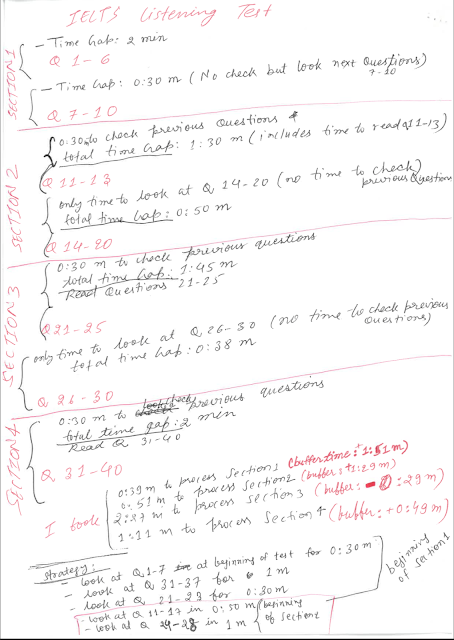 IELTS Listening Test
SECTION 1
- Time Gap: 2 min
Q 1-6
- Time Gap: 0:30 m (No check but look next Questions)
7-10
Q 7-10
SECTION 2
0:30 m to check previous Questions &
total time Gap: 1:30 m (includes time to read Q 11-13)
Q 11-13
only time to look at Q 14-20 (no time to check)
previous Questions
total time Gap: 0:50 m
Q 14-20
SECTION 3
0:30 m to check previous questions
total time Gap: 1:45 m
Read Questions 21-25
Q 21-25
only time to look at Q 26-30 (no time to check previous
Questions)
total time Gap: 0:38 m
Q 26-30
SECTION 4
0:30 m to check previous questions
total time gap: 2 min
Read Q 31-40
Q 31-40
I took
0:39 m to process Section 1 (buffer time: +1:51 m)
0:51 m to process Section 2 (buffer: +1:29 m)
2:27 m to process section 3 (buffer: - 0:29 m)
1:11 m to process Section 4 (buffer: +0:49 m)
Strategy:
- look at Q 1-7 at beginning of test for 0:30 m
- look at Q 31-37 for 1 m
- look at Q 21-28 for 0:30 m
beginning
of section 1
- look at Q 11-17 in 0:50 m
- look at Q 24-28 in 1 m
beginning
of section 2